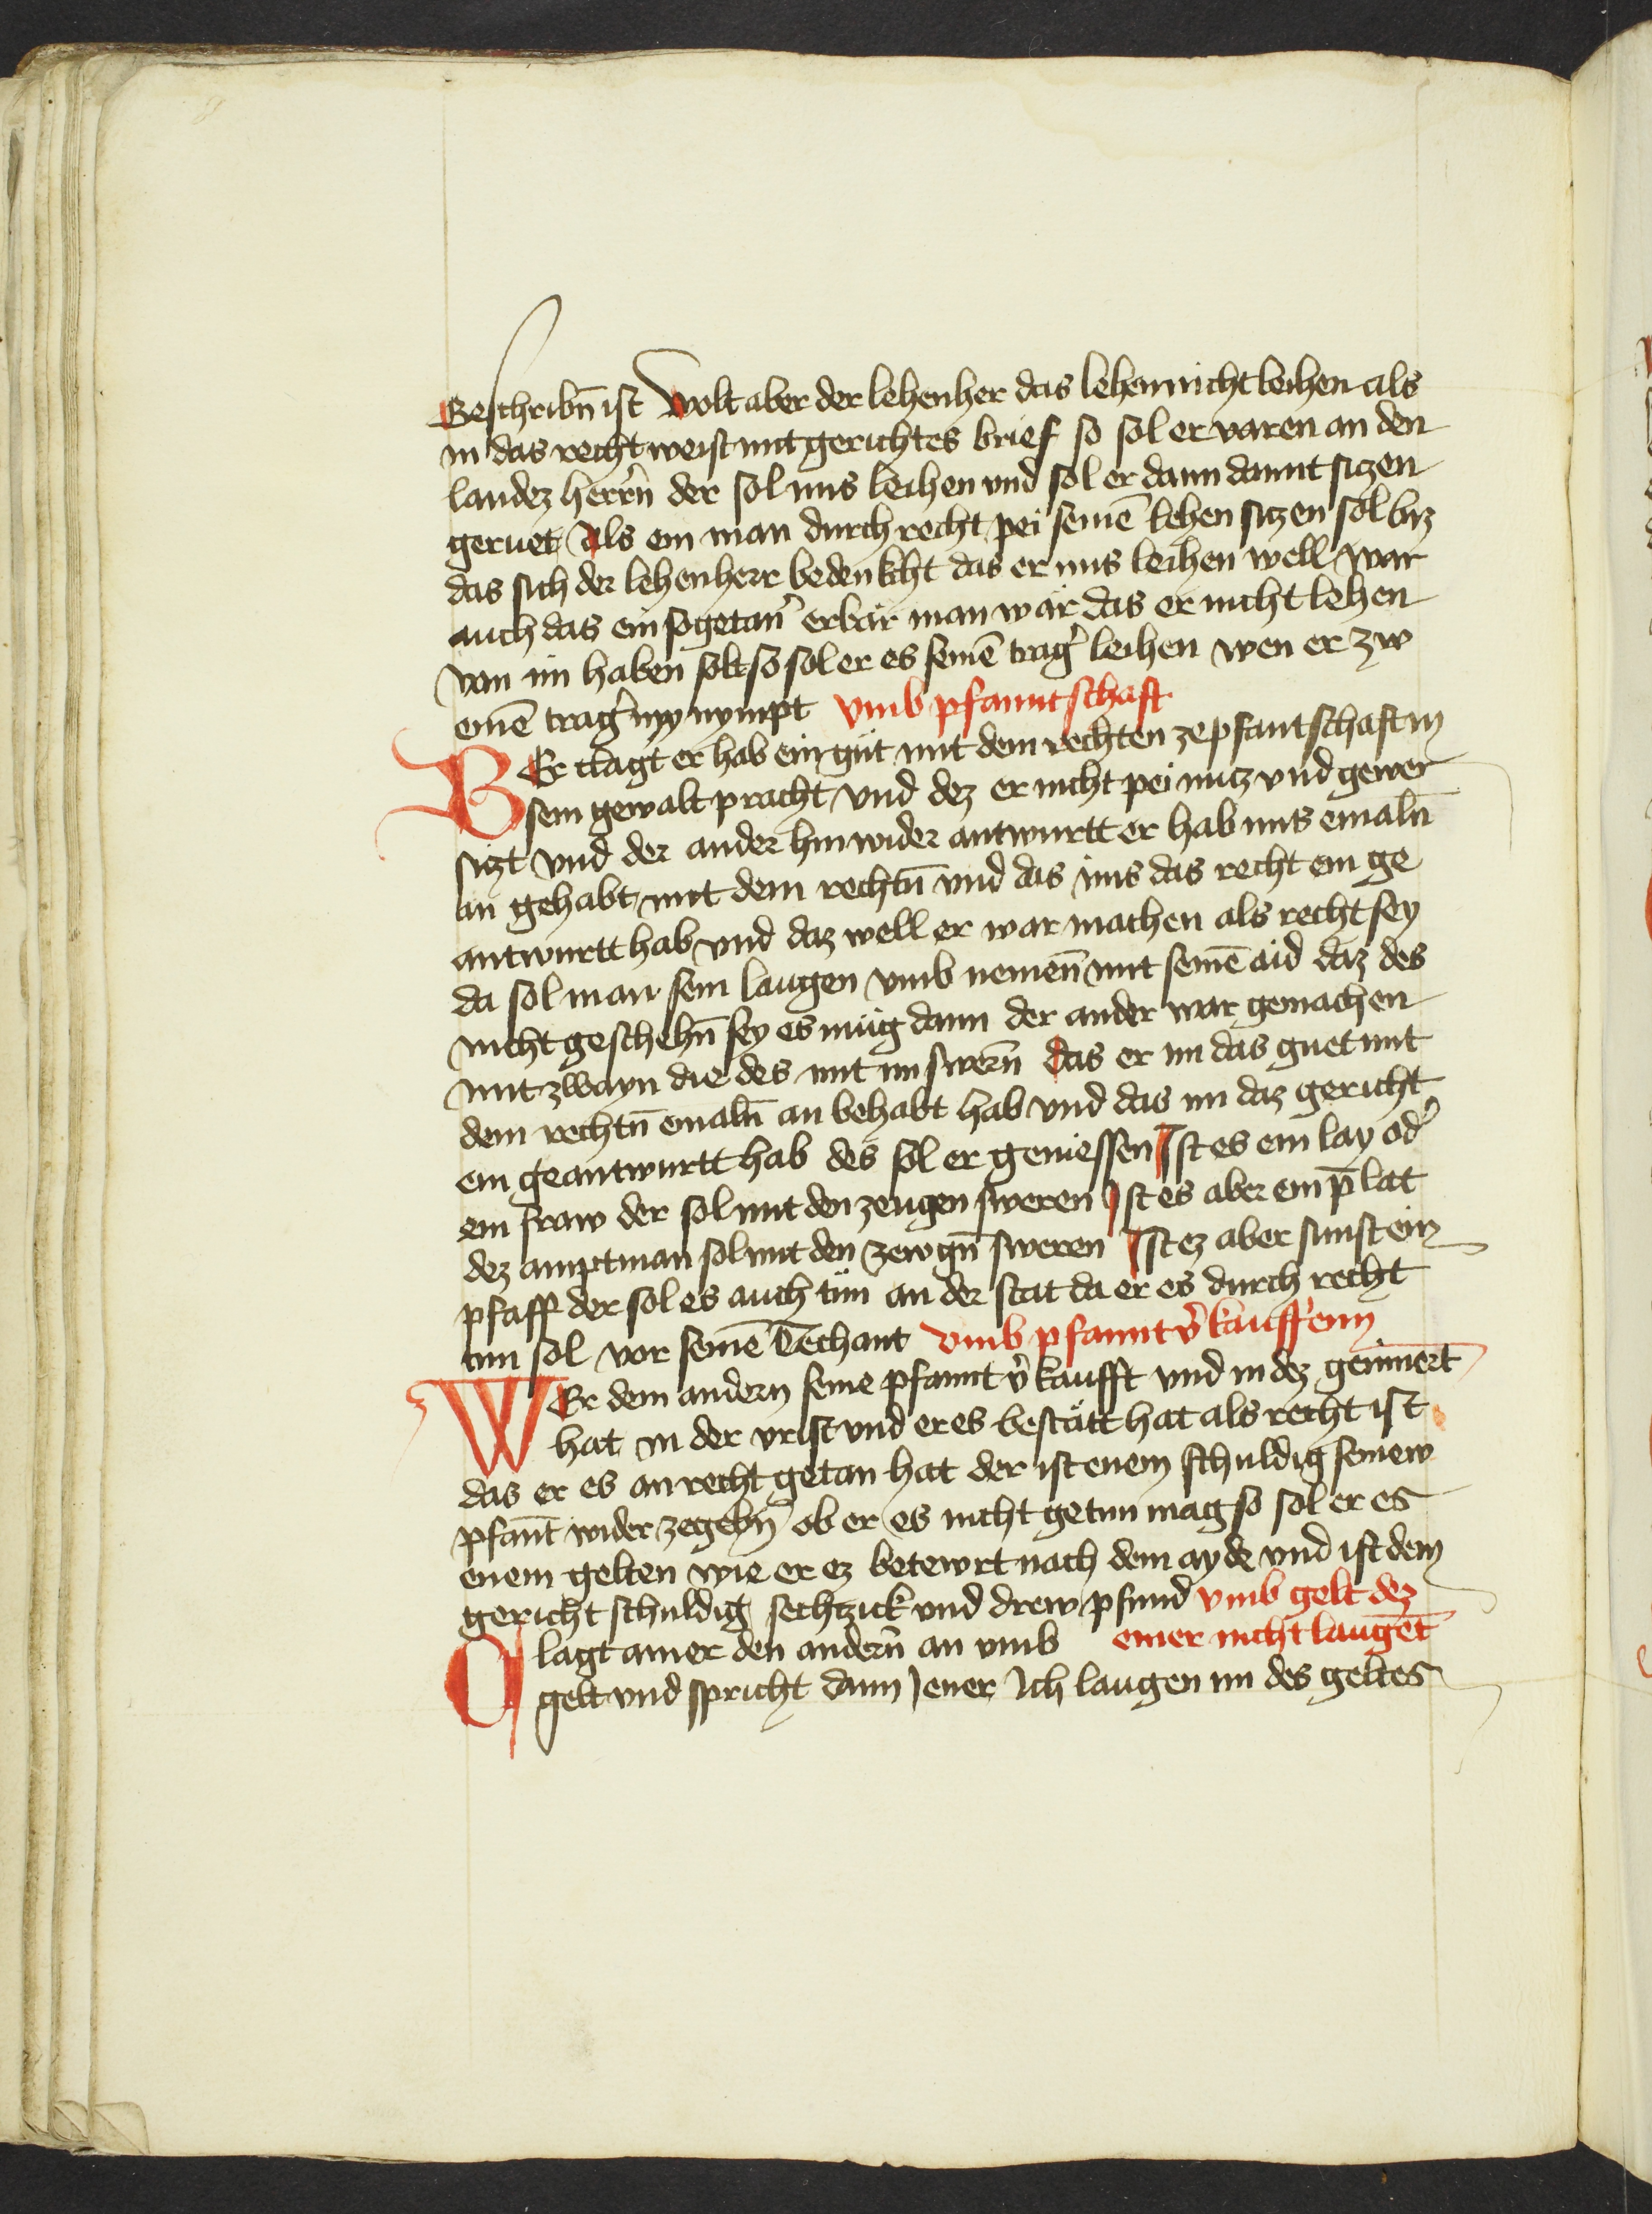 Beschribn̄ ist Wolt aber der lehenher das lehenn nicht leihen als
in das recht weist mit gerichtes brief so sol er varen an den
landez herrn̄ der sol ims leihen vnd sol er dann damit siczen
geruet Als ein man durch recht pei seinē lehen siczen sol biz
das sich der lehenherr bedenkcht das er ims leihen well wär
auch das ein sogetan̄ erbär man wär das er nicht lehen
von im haben solt so sol er es seinē trag̉ leihen wen er zw
einē trag̉ nym̄pt vmb pfanntschaft
Er clagt er hab ein güt mit dem rechten ze pfantschaft in
sein gewalt pracht vnd dez er nicht pei nucz vnd gewer
siczt vnd der ander hin wider antwurtt er hab ims emaln̄
an gehabt mit dem rechtn̄ vnd das ims das recht ein ge
antwurtt hab vnd daz well er war machen als recht sey
da sol man sein laugen vmb nemen̄ mit seinē aid daz des
nicht geschehn̄ sey es müg dann der ander war gemachen
mit zwayn die des mit im swern̄ das er im das guet mit
dem rechtn̄ emaln̄ an behabt hab vnd das im daz gericht
ein geantwurtt hab des sol er geniessen Ist es ein lay od̉
ein fraw der sol mit den zeugen sweren Ist es aber ein p̄lat
dez amptman sol mit den zewgn̄ sweren Ist ez aber sunst ein
pfaff der sol es auch tün an der stat da er es durch recht
tun sol vor seinē Techant vmb pfannt v̉kauffenn
WEr dem andern seine pfannt v̉kaufft vnd in dez geinnert
hat in der vrist vnd er es bestätt hat als recht ist
das er es an recht getan hat der ist enem schuldig seinew
pfant wider zegebn̄ ob er es nicht getun mag so sol er es
enem gelten wie er ez betewrt nach dem ayde vnd ist dem
gericht schuldig sechtzick vnd drew pfund vmb gelt dez
lagt ainer den andern̄ an vmb einer nicht laugēt
gelt vnd spricht dann Jener Ich laugen im des geltes